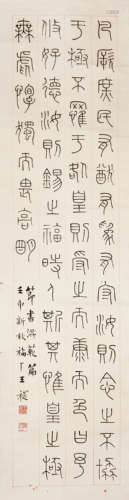 凡厥庶民有猷有為有守汝則念之不協
于極不罹于咎皇則受之而康而色曰予
攸好德汝則錫之福時人斯其惟皇之極
無虐煢獨而畏高明
節書洪範篇
壬申新秋福厂王禔